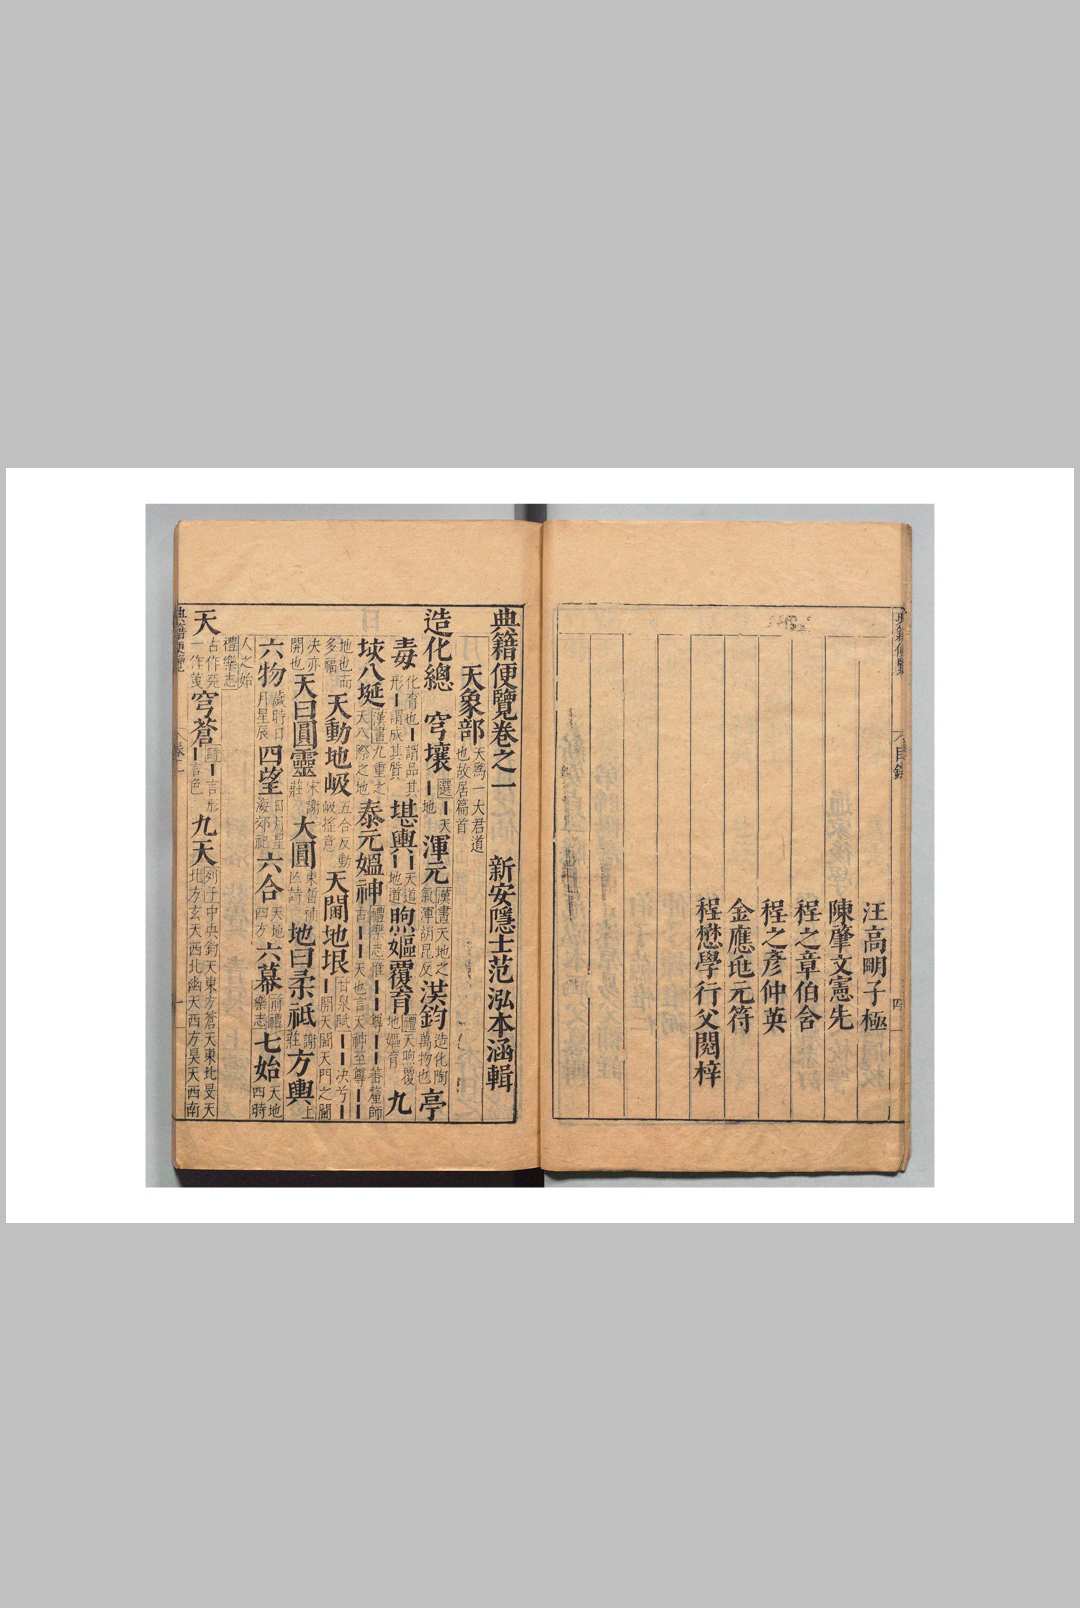 典籍便覽
目錄
四
汪高明子極
陳肇文憲先
程之章伯含
程之彥仲英
金應坒元符
程懋學行父閱梓
典籍便覽卷之一 新安隱士范泓本涵輯
天象部天爲一大君道也故居篇首
造化總 穹壤選┃天┃地 渾元漢書天地之氣渾胡昆反 洪鈞造化陶萬物也 亭
毒化育也┃謂品其形┃謂成其質 堪輿┃天道┃地道 煦嫗覆育禮天喣覆地嫗育 九
垓八埏漢書九重之天八際之地 泰元媼神禮樂志惟┃┃尊┃┃蕃釐師古┃┃天也言天神至尊┃┃
地也而多福 天動地岋五合反動岋搖意 天閫地垠甘泉賦┃┃决兮┃┃開天閫天門之閫
决亦開也 天曰圓靈宋謝莊 大圓束晳補亾詩 地曰柔祇謝莊 方輿上
六物歲時日月星辰 四望日月星海郊祀 六合天地四方 六幕前禮樂志 七始天地四時
人之始禮樂志
天古作 穹蒼┃言形┃言色 九天列子中央鈞天東方蒼天東北旻天北方玄天西北幽天西方昊天西南
典籍便覽
卷一
一